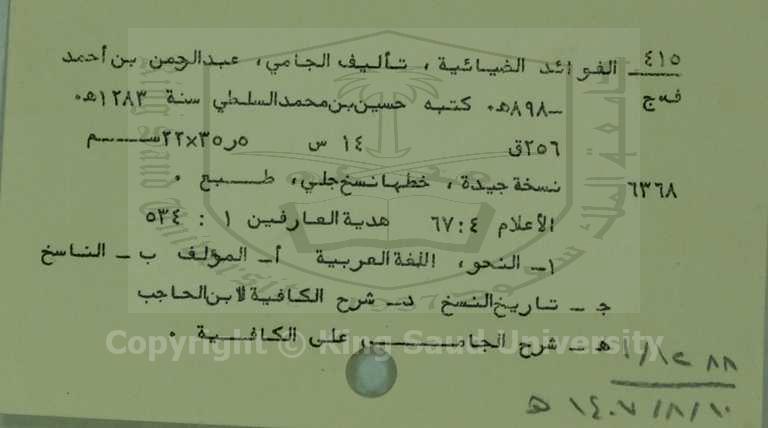 ٤١٥ الفوائد الضيائية، تأليف الجامي، عبدالرحمن بن أحمد
ف٠ج -٨٩٨هـ٠ كتبه حسين بن محمد السلطي سنة ١٢٨٣هـ٠
٢٥٦ق ١٤ س ٣٥ر٥×٢٢سم
٦٣٦٨ نسخة جيدة، خطها نسخ جلي، طبع ٠
الأعلام ٤:٦٧ هدية العارفين ١ : ٥٣٤
١- النحو، اللغة العربية أ- المؤلف ب- الناسخ
ج - تاريخ النسخ د- شرح الكافية لابن الحاجب
هـ - شرح الجامي على الكافية ٠
Copyright © King Saud University
١٤٠٧/٨/١٠ هـ